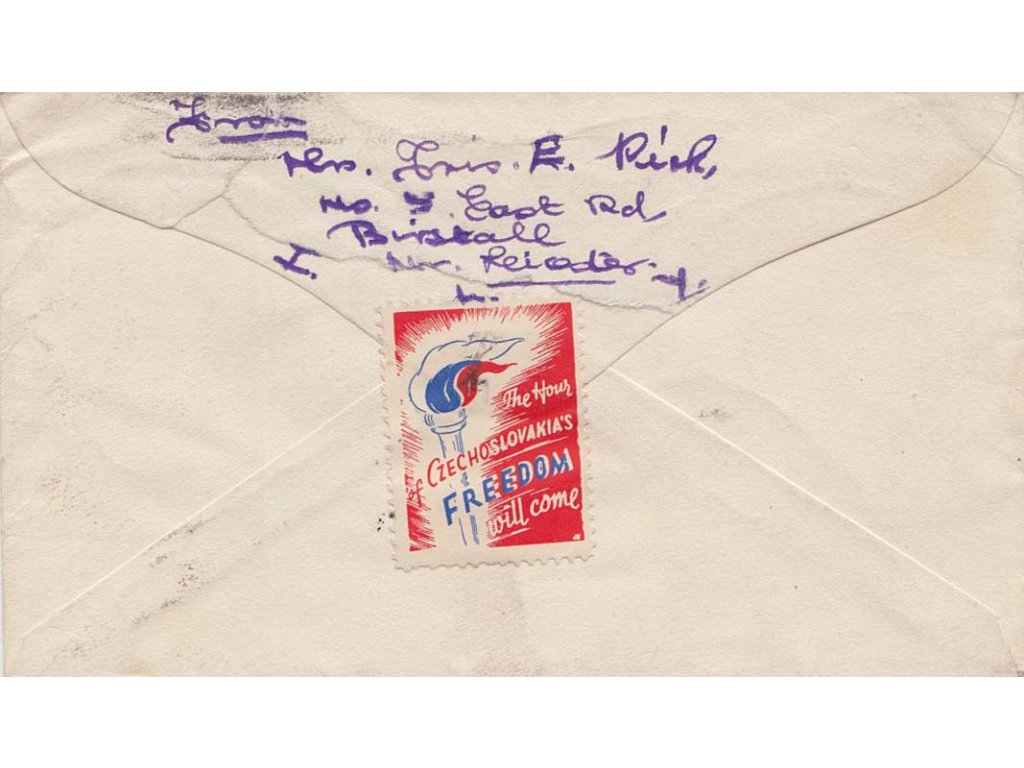 From
Mrs. Iris. E. Pick,
No. 7. East Rd,
Birstall
Nr. Leicester.
The Hour
of CZECHOSLOVAKIA'S
FREEDOM
will come